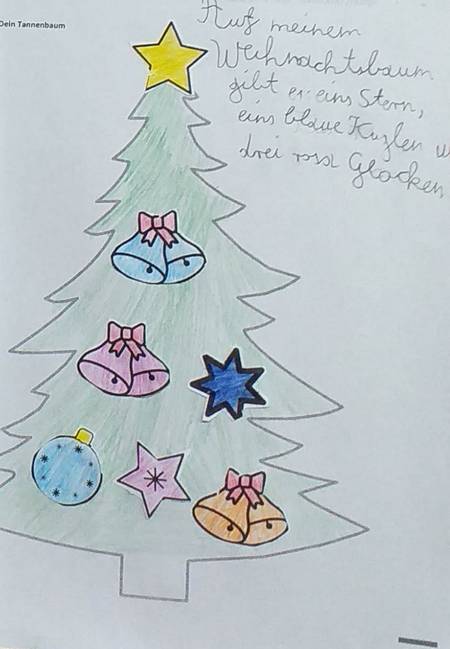 Dein Tannenbaum
Auf meinem
Weihnachtsbaum
gibt es eins Stern,
eins blaue Kuglen u
drei rosa Glocken